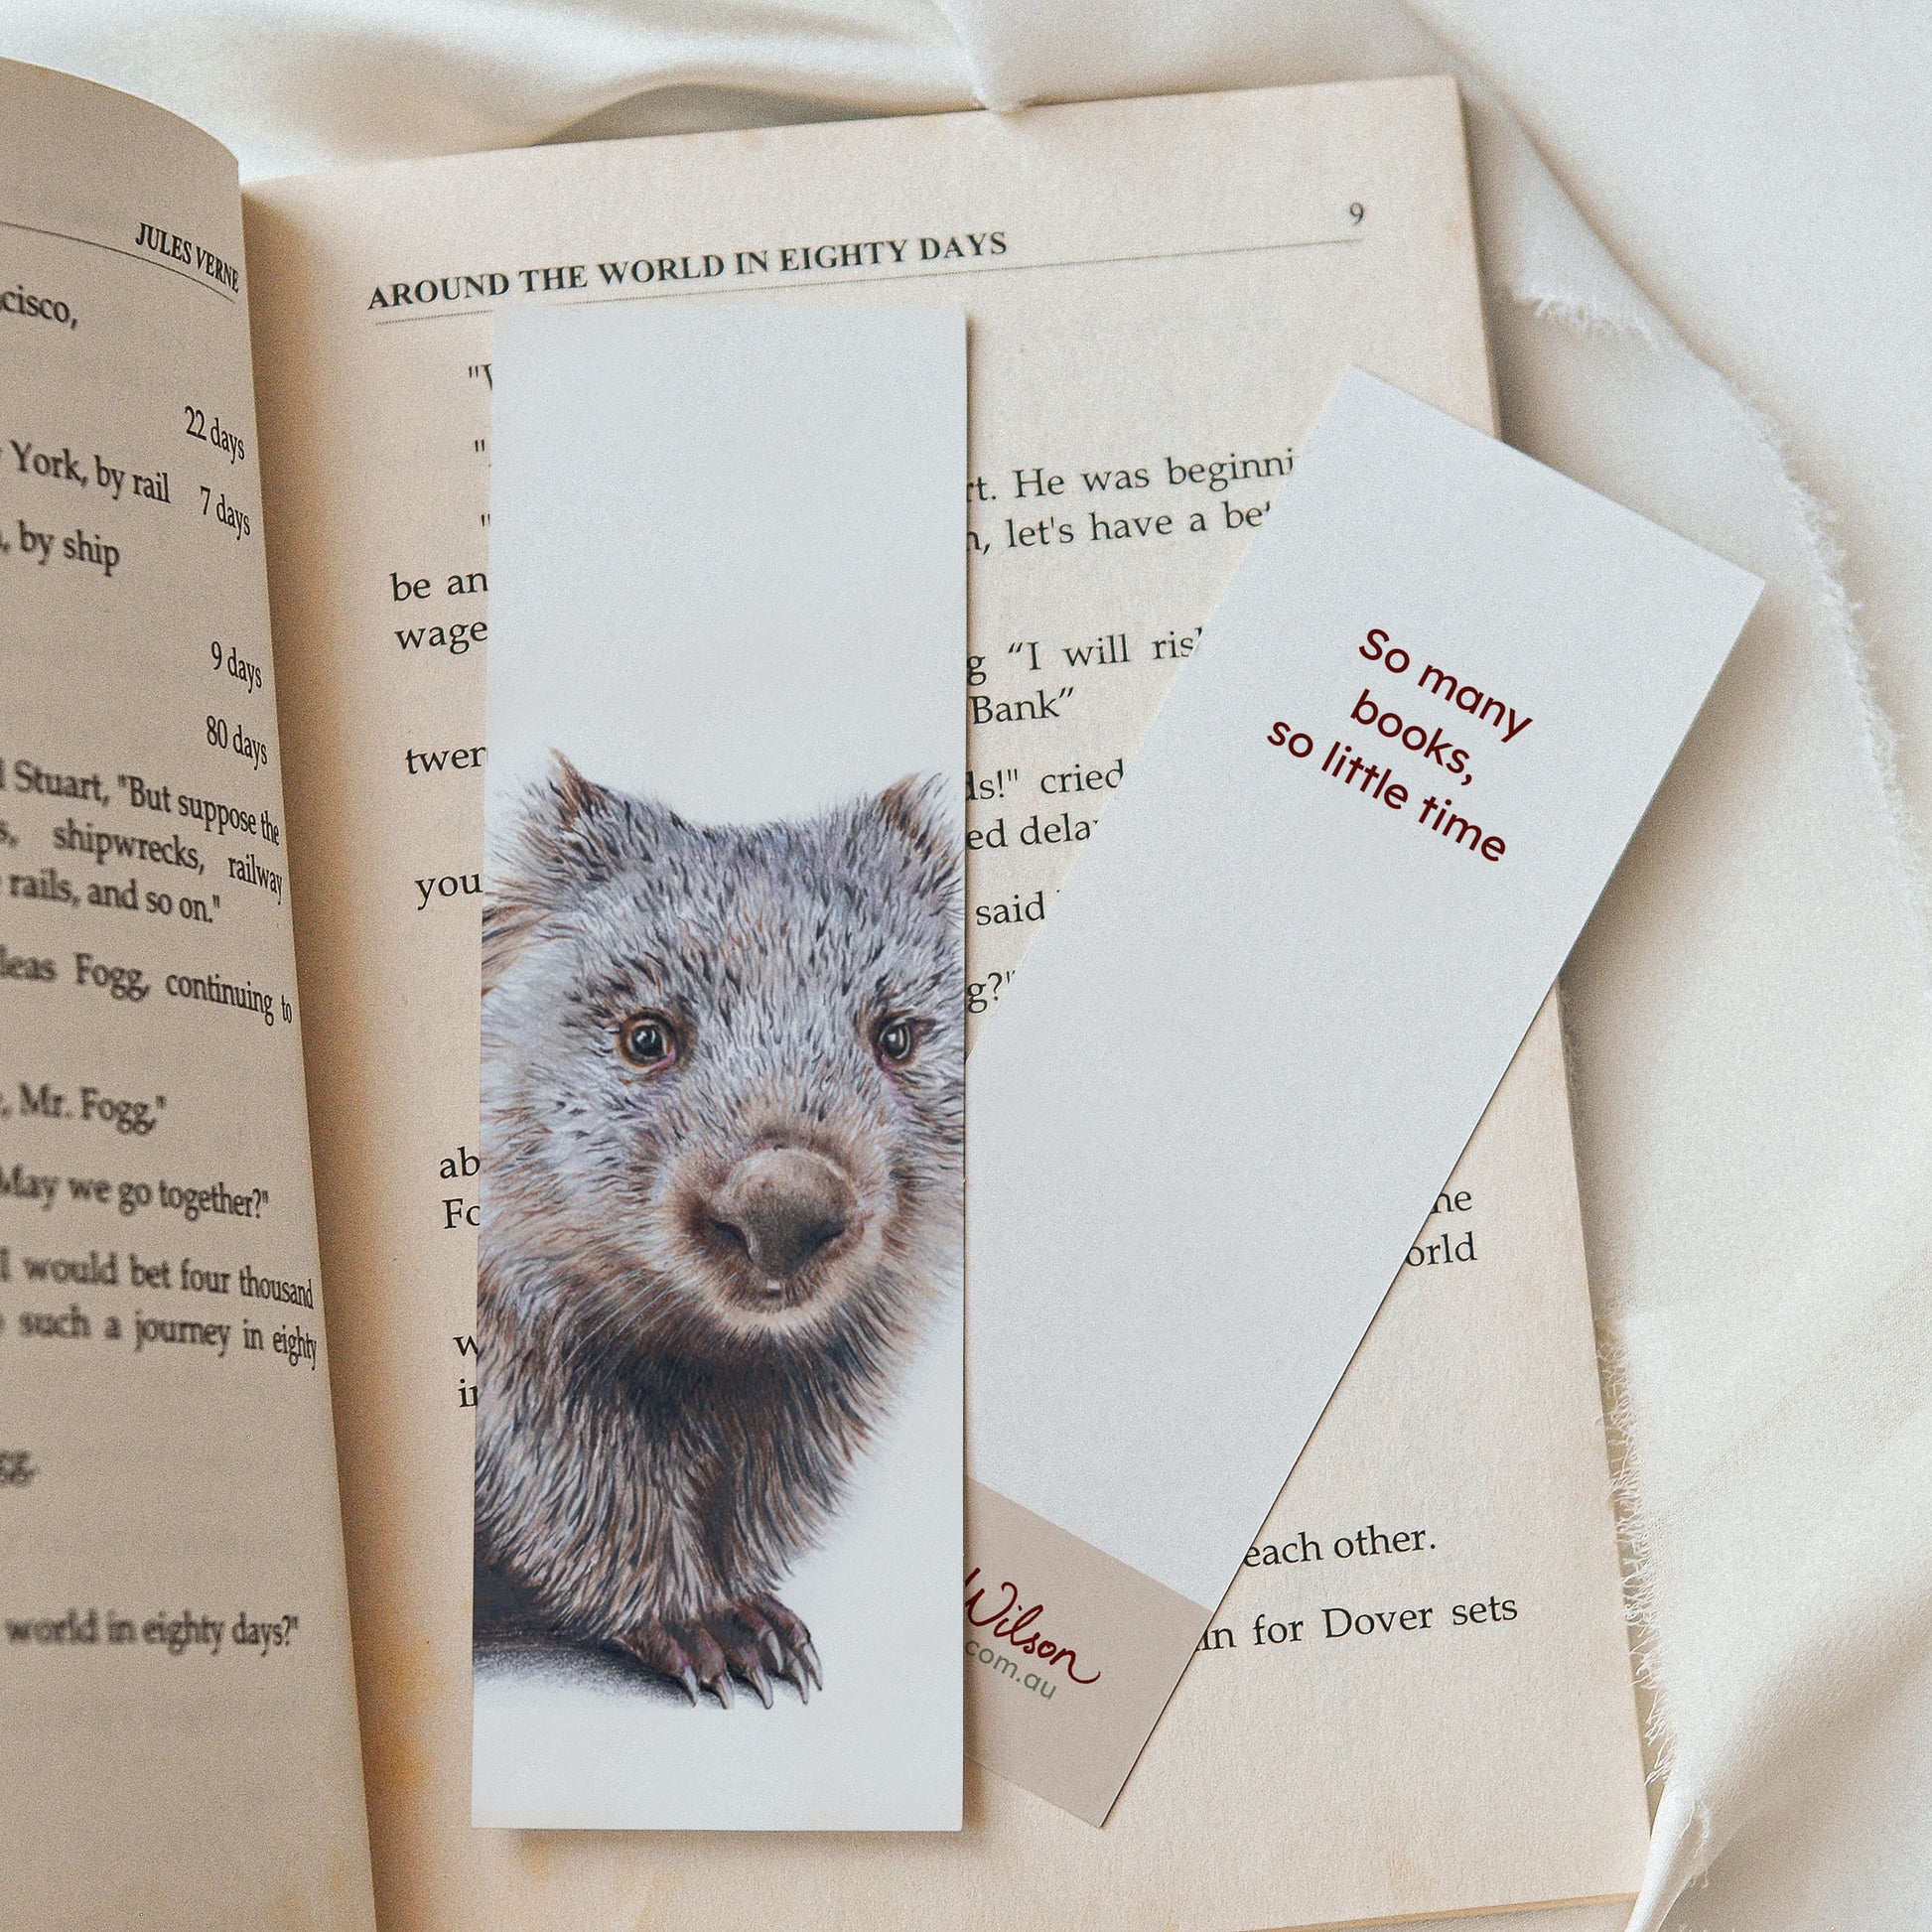 JULES VERNE
22 days
York, by rail 7 days
by ship
9 days
80 days
Stuart, "But suppose the
shipwrecks, railway
rails, and so on."
Fogg, continuing to
Mr. Fogg,"
May we go together?"
I would bet four thousand
such a journey in eighty
world in eighty days?"
AROUND THE WORLD IN EIGHTY DAYS 9
He was beginni
let's have a be
be an
wage
"I will ris
Bank"
twer
cried
ed dela
you
said
ab
Fo
each other.
for Dover sets
So many
books,
so little time
Wilson
com.au